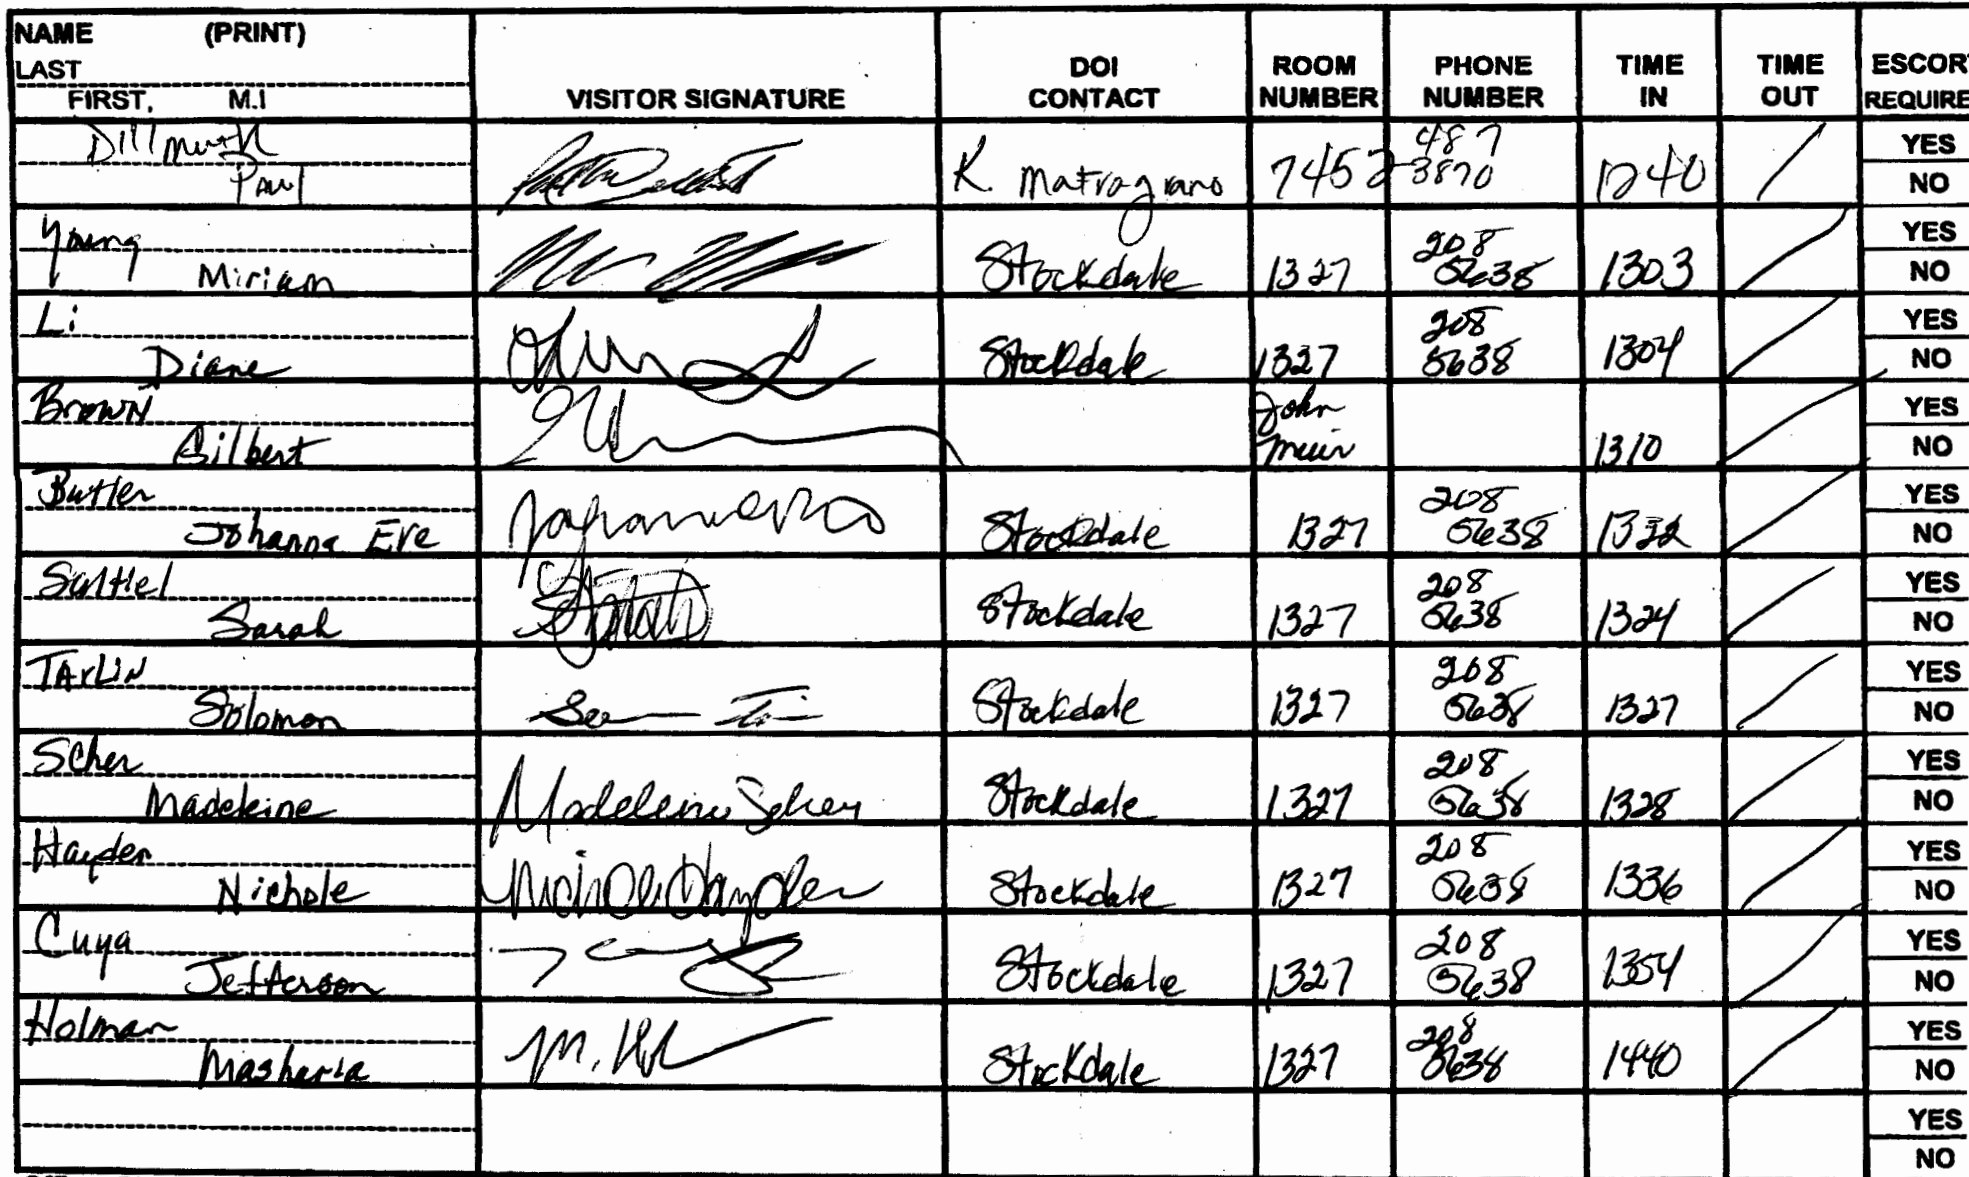 NAME (PRINT)
LAST
FIRST, M.I
VISITOR SIGNATURE
DOI
CONTACT
ROOM
NUMBER
PHONE
NUMBER
TIME
IN
TIME
OUT
ESCORT
REQUIRE
Dillmuth
Paul
K. Matragrano 7452 487
3870 1240 YES
NO
Young
Miriam
Stockdale 1327 208
5638 1303 YES
NO
Li
Diane
Stockdale 1327 208
5638 1304 YES
NO
Brown
Gilbert
John
Muir 1310 YES
NO
Butler
Johanna Eve
Stockdale 1327 208
5638 1322 YES
NO
Saltiel
Sarah
Stockdale 1327 208
5638 1324 YES
NO
TArLiN
Solomon
Stockdale 1327 208
5638 1327 YES
NO
Scher
Madeleine
Madeleine Scher
Stockdale 1327 208
5638 1328 YES
NO
Hayden
Nichole
Nichole Hayden
Stockdale 1327 208
5638 1336 YES
NO
Cuya
Jefferson
Stockdale 1327 208
5638 1354 YES
NO
Holman
Masharia
M. Hol
Stockdale 1327 208
5638 1440 YES
NO
YES
NO